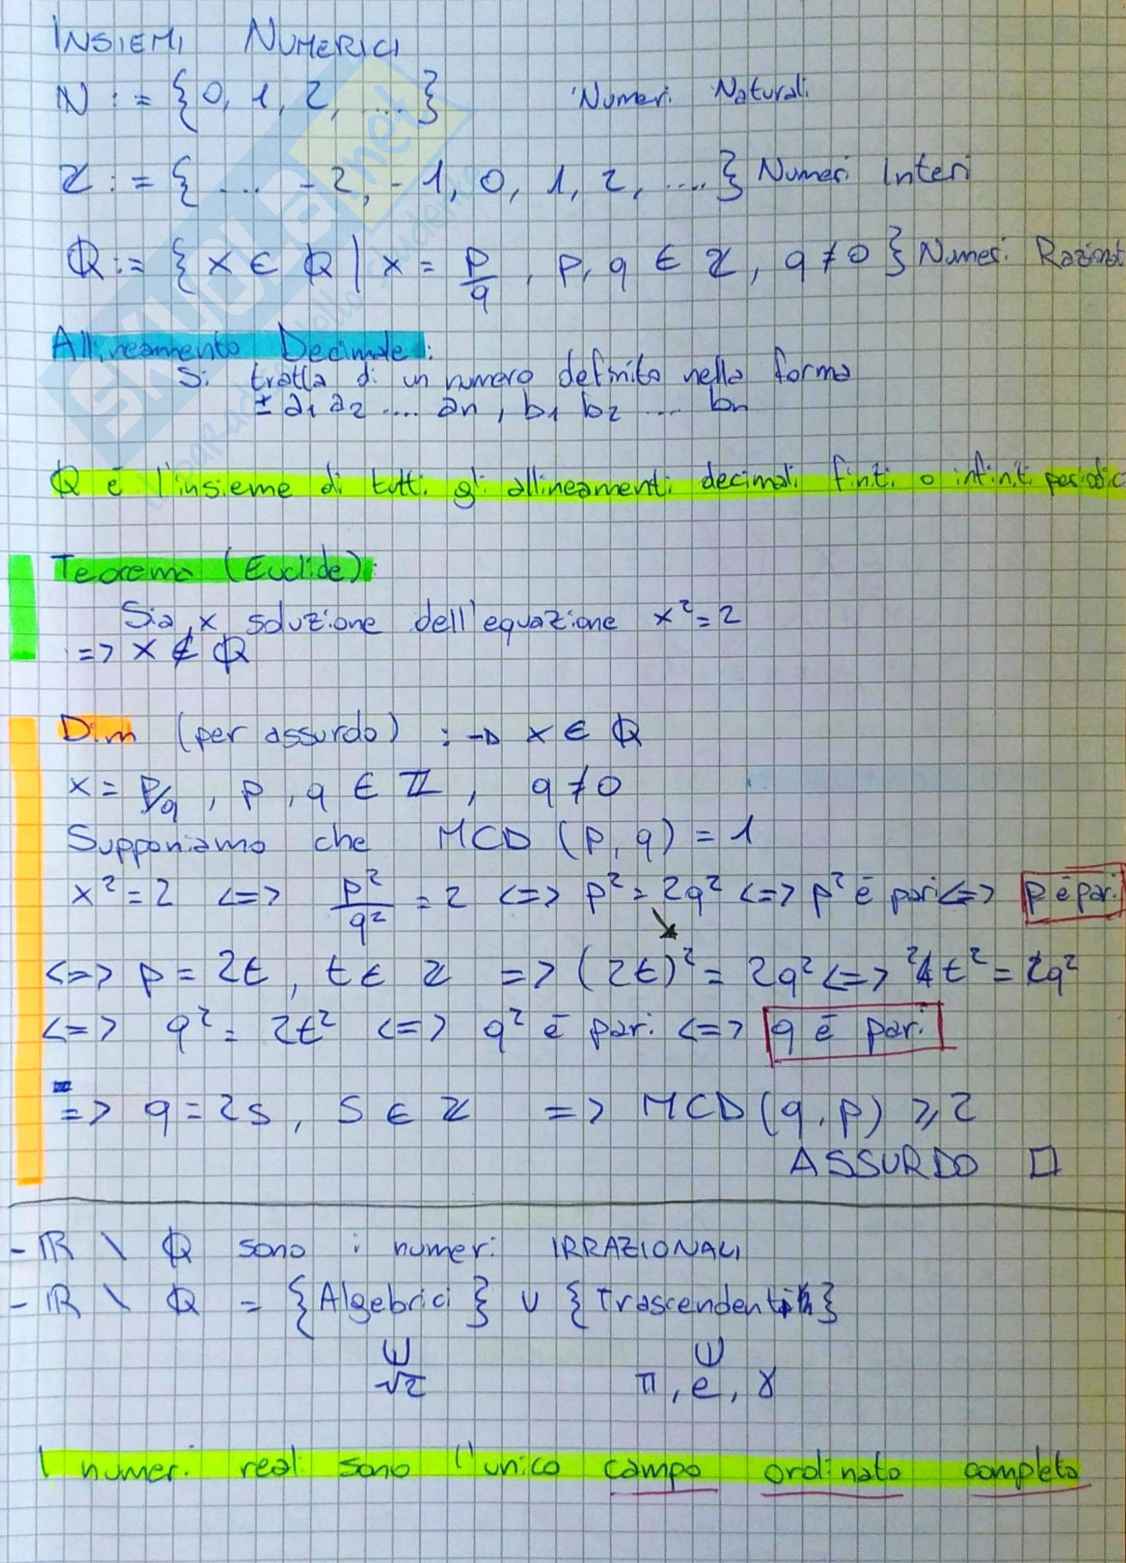 INSIEMI NUMERICI
ℕ := {0, 1, 2, ...} Numeri Naturali
ℤ := { .... -2, -1, 0, 1, 2, ....} Numeri Interi
ℚ := {x ∈ ℚ | x = p/q , p, q ∈ ℤ, q ≠ 0} Numeri Razional
Allineamento Decimale:
Si tratta di un numero definito nella forma
± a₁ a₂ .... an , b₁ b₂ .... bn
ℚ è l'insieme di tutti gli allineamenti decimali finiti o infiniti periodic
Teorema (Euclide):
Sia x soluzione dell'equazione x² = 2
=> x ∉ ℚ
Dim (per assurdo) : → x ∈ ℚ
x = p/q , p , q ∈ ℤ , q ≠ 0
Supponiamo che MCD (p, q) = 1
x² = 2 <=> p²/q² = 2 <=> p² = 2q² <=> p² è pari <=> p è pari
<=> p = 2t , t ∈ ℤ => (2t)² = 2q² <=> ²4t² = 2q²
<=> q² = 2t² <=> q² è pari <=> q è pari
=> q = 2s , s ∈ ℤ => MCD (q, p) ≥ 2
ASSURDO □
- ℝ \ ℚ sono i numeri IRRAZIONALI
- ℝ \ ℚ = {Algebrici} ∪ {Trascendenti}
√2 π, e, γ
I numeri reali sono l'unico campo ordinato completo
SKUOLA.net